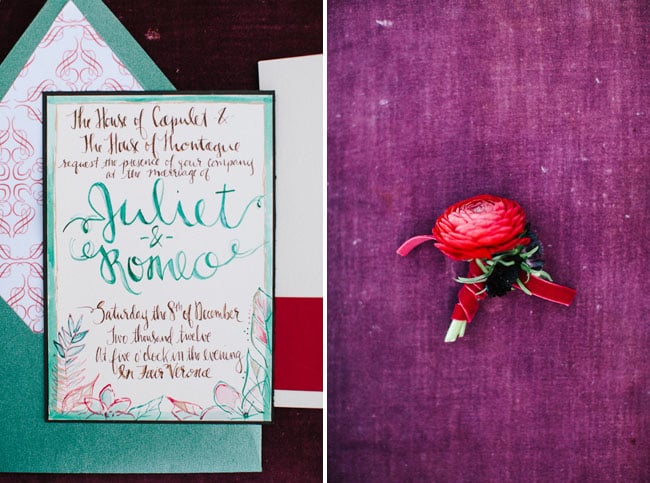 The House of Capulet &
The House of Montague
request the presence of your company
at the marriage of
Juliet
-&-
Romeo
Saturday the 8th of December
Two thousand twelve
At five o'clock in the evening
In Fair Verona